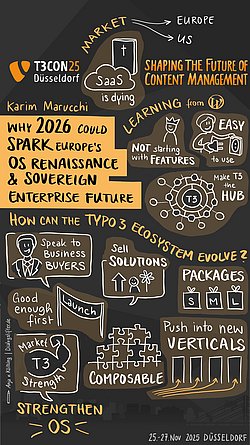 MARKET
EUROPE
US
T3CON25
Düsseldorf
SaaS
is dying
SHAPING THE FUTURE OF
CONTENT MANAGEMENT
Karim Marucchi
WHY 2026 COULD
SPARK EUROPE'S
OS RENAISSANCE
& SOVEREIGN
ENTERPRISE FUTURE
LEARNING from W
NOT starting
with FEATURES
EASY
to use
Make T3
the HUB
T3
HOW CAN THE TYPO3 ECOSYSTEM EVOLVE?
Speak to
BUSINESS
BUYERS
Sell
SOLUTIONS
PACKAGES
S M L
Good
enough
first
Launch
Market
T3
Strength
STRENGTHEN
OS
COMPOSABLE
Push into new
VERTICALS
25.-27. NOV 2025 DÜSSELDORF